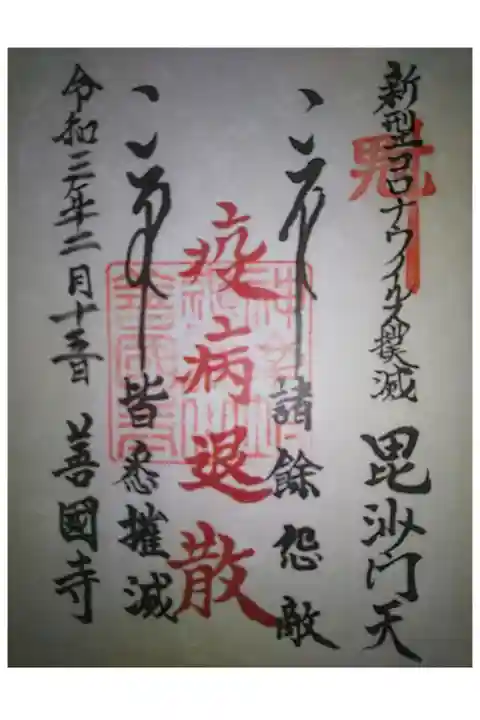 新型コロナウイルス撲滅 毘沙門天
諸餘怨敵
疫病退散
皆悉摧滅
令和三年二月十三日 善國寺